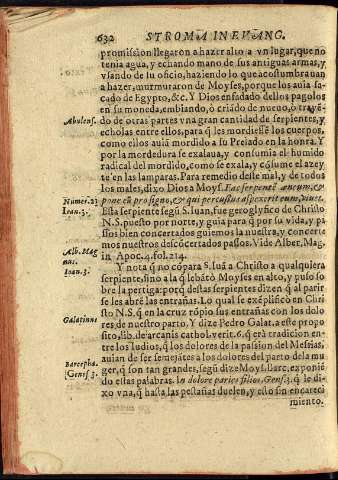 632 STROMA IN EVANG.
promission llegaron a hazer alto a vn lugar, que no
tenia agua, y echando mano de sus antiguas armas, y
vsando de su oficio, haziendo lo que acostumbrauan
a hazer, murmuraron de Moyses, porque los auia sa-
cado de Egypto, &c. Y Dios enfadado dellos pagolos
en su moneda, embiando, ò criãdo de nueuo, ò trayẽ-
Abulens.
do de otras partes vna gran cantidad de serpientes, y
echolas entre ellos, para q̃ les mordiessẽ los cuerpos,
como ellos auiã mordido a su Prelado en la honra. Y
por la mordedura se exalaua, y consumia el humido
radical del mordido, como se exala, y cõsume el azey
te en las lamparas. Para remedio deste mal, y de todos
los males, dixo Dios a Moys. Fac serpentẽ æneum, &
Numer. 23
pone eũ pro signo, & qui percussus aspexerit eum, viuet.
Ioan. 3.
Esta serpiente segũ S. Iuan, fue geroglyfico de Christo
N. S. puesto por norte, y guia para q̃ por su vida, y pa
ssos bien concertados guiemos la nuestra, y concerte
mos nuestros descõcertados passos. Vide Alber. Mag.
Alb. Mag
nus.
in Apoc. 4. fol. 214.
Ioan. 3.
Y nota q̃ no cõpara S. Iuã a Christo a qualquiera
serpiente, sino a la q̃ leuãtò Moyses en alto, y puso so
bre la pertiga: porq̃ destas serpientes dizen q̃ al parir
se les abrẽ las entrañas. Lo qual se exẽplificò en Chri
sto N. S. q̃ en la cruz rõpio sus entrañas con los dolo
Galatinus
res de nuestro parto. Y dize Pedro Galat. a este propo
sito, lib. de arcanis cathol. verit. 6. q̃ erà tradicion en-
tre los Iudios, q̃ los dolores de la passion del Messias,
auian de ser semejãtes a los dolores del parto de la mu
Barcepha.
ger, q̃ son tan grandes, segũ dize Moys. Barc. exponiẽ
Genes. 3.
do estas palabras. In dolore paries filios, Gens. 3. q̃ le di-
xo vna, q̃ hasta las pestañas duelen, y esto sin encareci
miento.